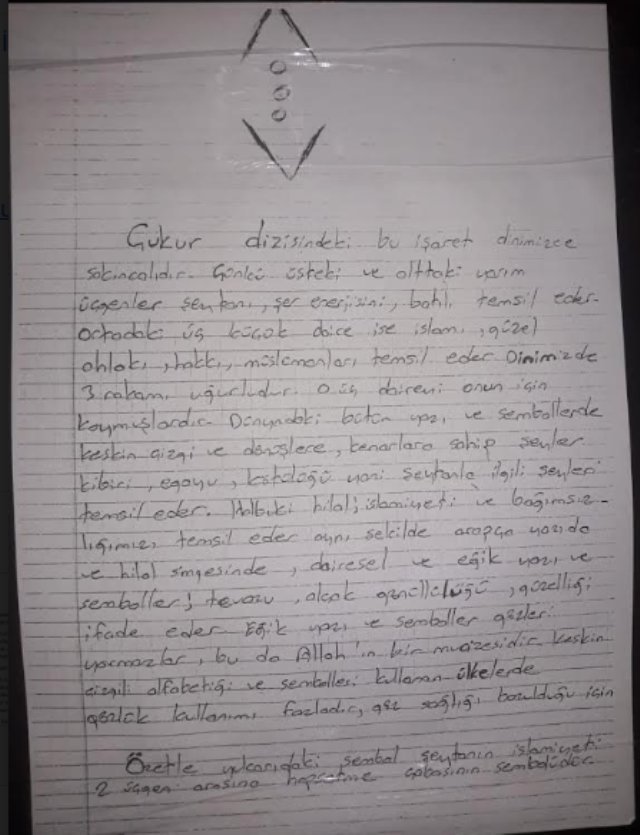 Çukur dizisindeki bu işaret dinimizce
sakıncalıdır. Çünkü üsteki ve alttaki yarım
üçgenler şeytanı, şer enerjisini, batılı temsil eder.
Ortadaki üç küçük daire ise islamı, güzel
ahlakı, hakkı, müslümanları temsil eder. Dinimizde
3 rakamı uğurludur. O üç daireyi onun için
koymuşlardır. Dünyadaki bütün yazı ve sembollerde
keskin çizgi ve dönüşlere, kenarlara sahip şeyler
kibiri, egoyu, kötülüğü yani şeytanla ilgili şeyleri
temsil eder. Halbuki hilal; islamiyeti ve bağımsız-
lığımızı temsil eder aynı şekilde arapça yazıda
ve hilal simgesinde, dairesel ve eğik yazı ve
semboller; tevazu, alçak gönüllülüğü, güzelliği
ifade eder Eğik yazı ve semboller gözleri
yormazlar, bu da Allah'ın bir mucizesidir. Keskin
çizgili alfabetiği ve sembolleri kullanan ülkelerde
gözlük kullanımı fazladır, göz sağlığı bozulduğu için
Özetle yukarıdaki sembol şeytanın islamiyeti
2 üçgen arasına hapsetme çabasının sembolüdür